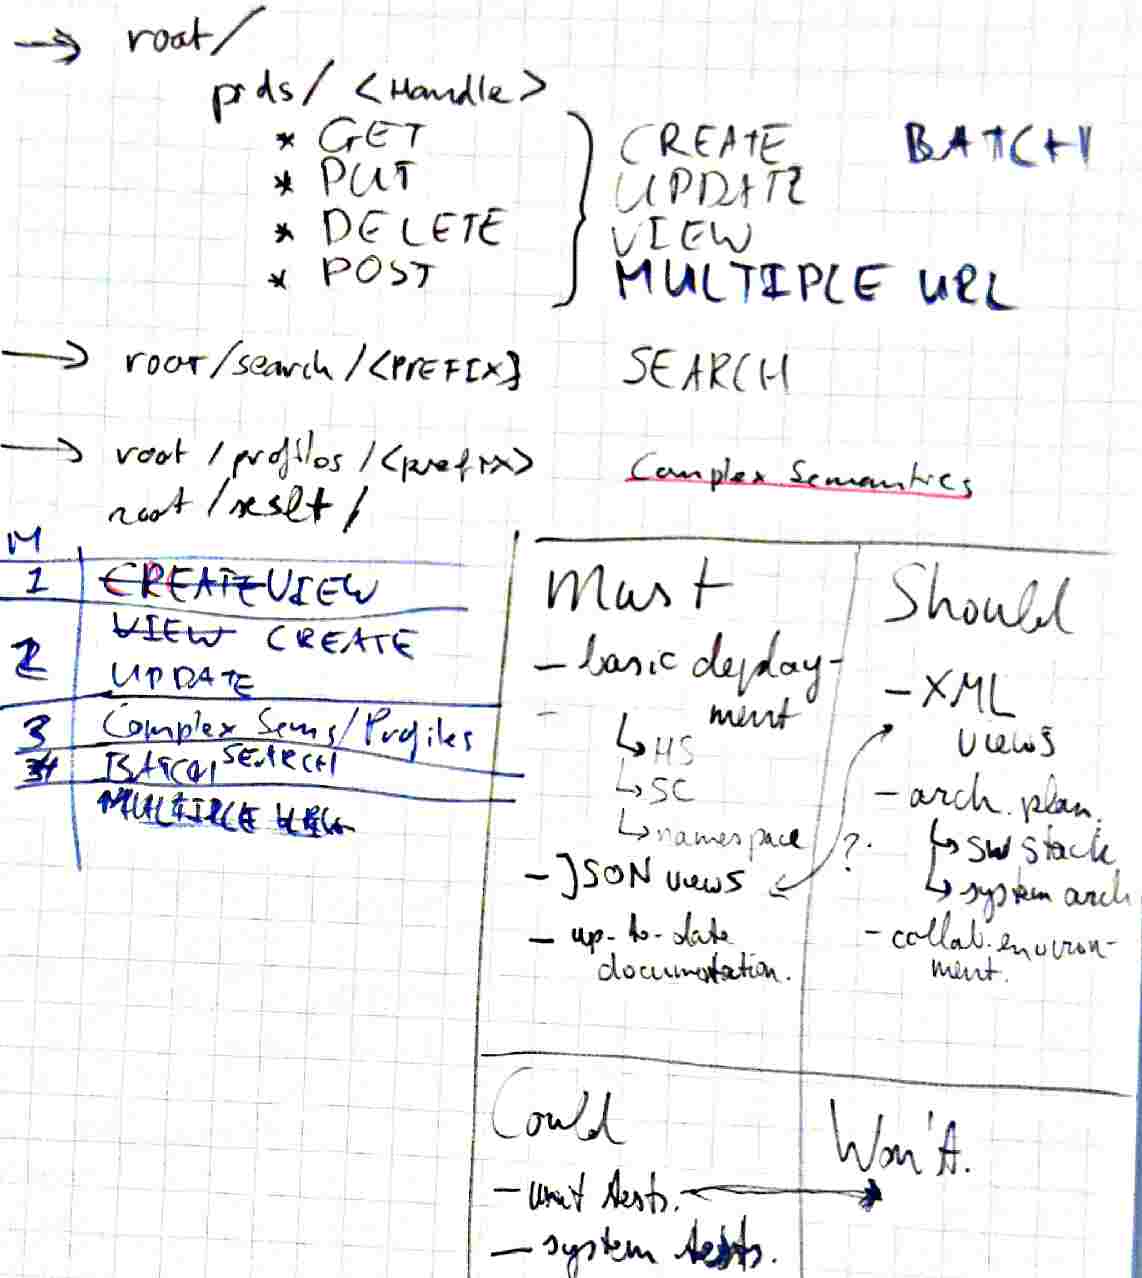 → root/
pids/ <Handle>
* GET
* PUT
* DELETE
* POST
CREATE
UPDATE
VIEW
MULTIPLE URL
BATCH
→ root/search/<PREFIX>
SEARCH
→ root/profiles/<prefix>
root/reslt/
Complex Semantics
M
1 CREATE VIEW
2 VIEW CREATE
UPDATE
3 Complex Sems/Profiles
BATCH SEARCH
MULTIPLE URL
Must
- basic deploy-
ment
↳ HS
↳ SC
↳ namespace
- JSON views
- up-to-date
documentation.
?
Should
- XML
views
- arch. plan.
↳ SW Stack
↳ system arch
- collab. environ-
ment.
Could
- unit tests.
- system tests.
Won't.